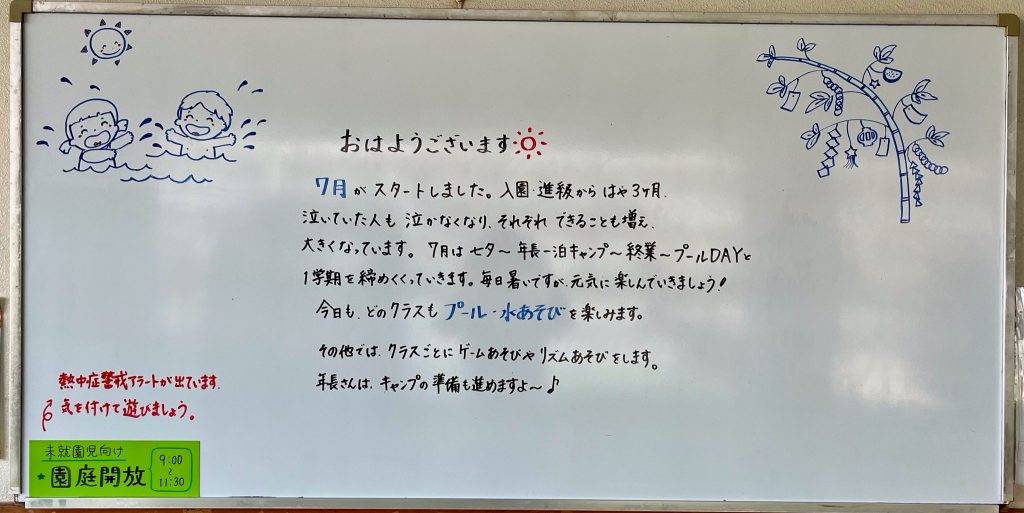 おはようございます
7月が スタートしました。入園・進級から はや3ヶ月、
泣いていた人も 泣かなくなり、それぞれ できることも増え、
大きくなっています。 7月は 七夕〜 年長一泊キャンプ〜 終業〜プールDAYと
1学期を 締めくくっていきます。毎日暑いですが、元気に 楽しんでいきましょう!
今日も、どのクラスも プール・水あそびを 楽しみます。
その他では、クラスごとに ゲームあそびや リズムあそびをします。
年長さんは、キャンプの 準備も進めますよ〜♪
熱中症警戒アラートが出ています。
気を付けて 遊びましょう。
未就園児向け
★園庭開放
9:00
〜
11:30